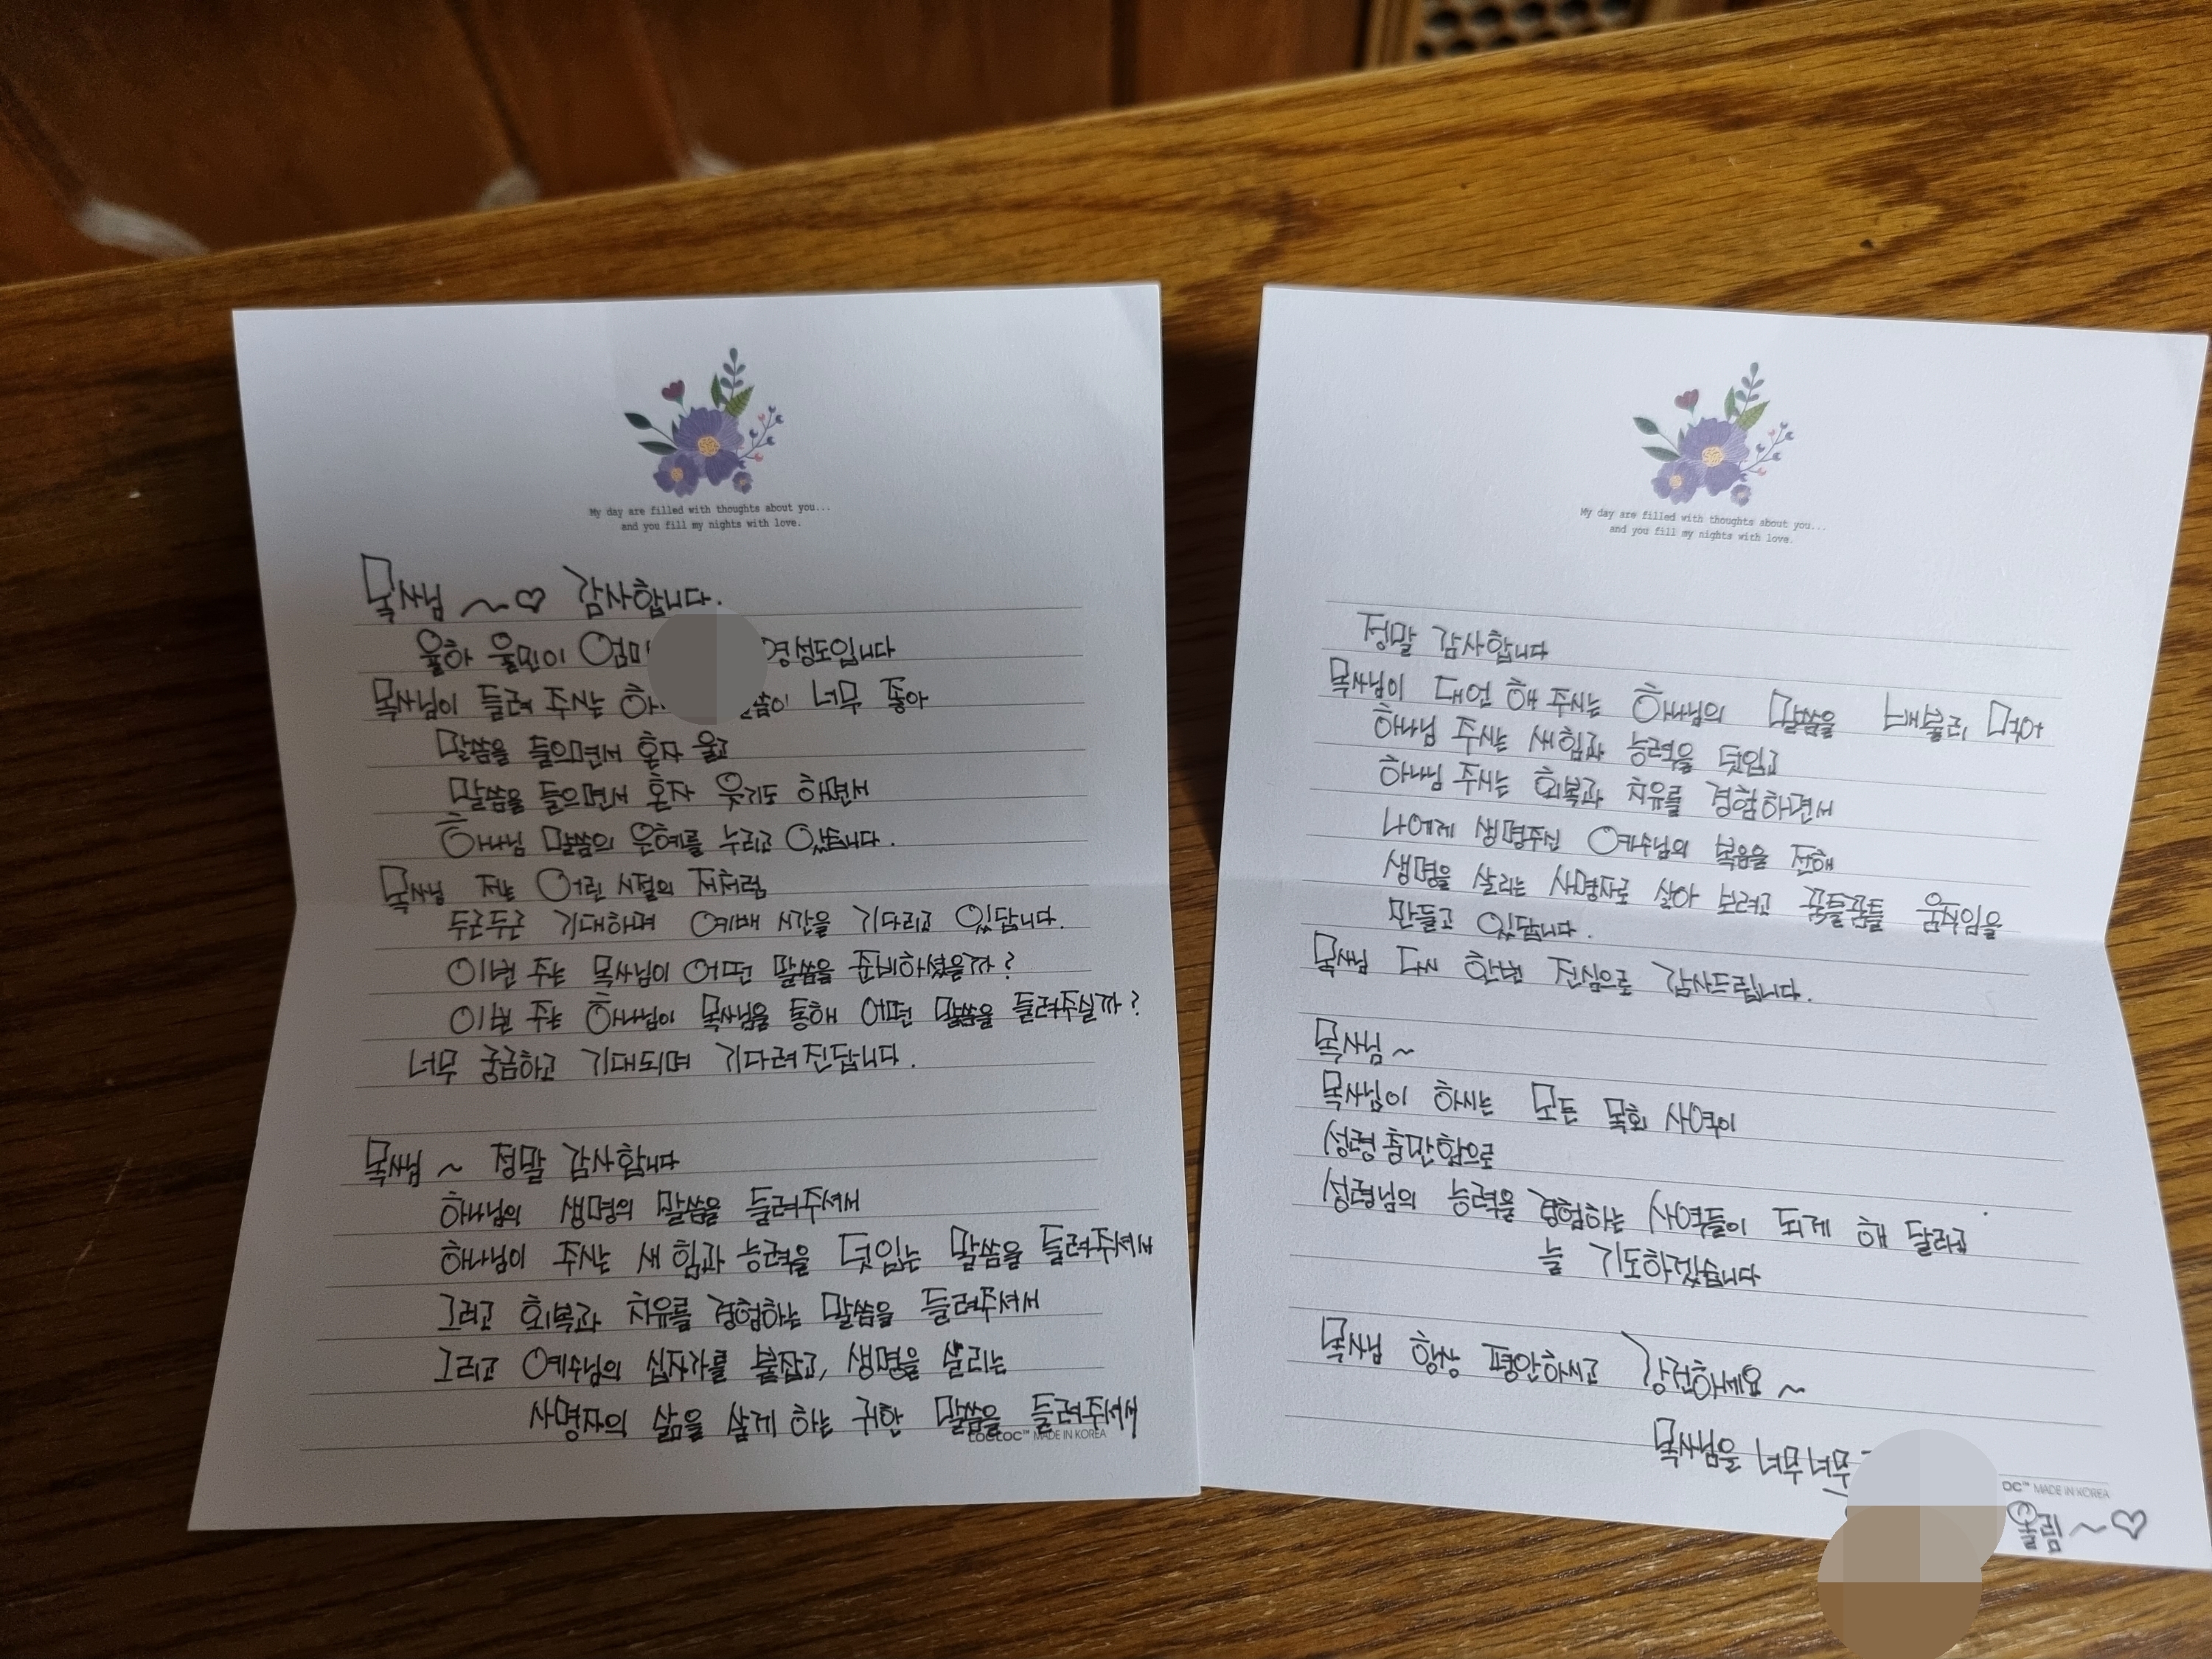 My day are filled with thoughts about you...
and you fill my nights with love.
목사님 ~♡ 감사합니다.
율하 율민이 엄마 영성도입니다
목사님이 들려 주시는 하 말씀이 너무 좋아
말씀을 들으면서 혼자 울고
말씀을 들으면서 혼자 웃기도 하면서
하나님 말씀의 은혜를 누리고 있습니다.
목사님 저는 어린 시절의 저처럼
두근두근 기대하며 예배 시간을 기다리고 있답니다.
이번 주는 목사님이 어떤 말씀을 준비하셨을까?
이번 주는 하나님이 목사님을 통해 어떤 말씀을 들려주실까?
너무 궁금하고 기대되며 기다려진답니다.
목사님 ~ 정말 감사합니다
하나님의 생명의 말씀을 들려주셔서
하나님이 주시는 새 힘과 능력을 덧입는 말씀을 들려주셔서
그리고 회복과 치유를 경험하는 말씀을 들려주셔서
그리고 예수님의 십자가를 붙잡고, 생명을 살리는
사명자의 삶을 살게 하는 귀한 말씀을 들려주셔서
MADE IN KOREA
My day are filled with thoughts about you...
and you fill my nights with love.
정말 감사합니다
목사님이 대언 해 주시는 하나님의 말씀을 배불리 먹어
하나님 주시는 새 힘과 능력을 덧입고
하나님 주시는 회복과 치유를 경험하면서
나에게 생명주신 예수님의 복음을 전해
생명을 살리는 사명자로 살아 보려고 꿈틀꿈틀 움직임을
만들고 있답니다.
목사님 다시 한번 진심으로 감사드립니다.
목사님 ~
목사님이 하시는 모든 목회 사역이
성령 충만함으로
성령님의 능력을 경험하는 사역들이 되게 해 달라고
늘 기도하겠습니다
목사님 항상 평안하시고 강건하세요 ~
목사님을 너무너무
MADE IN KOREA
올림 ~♡